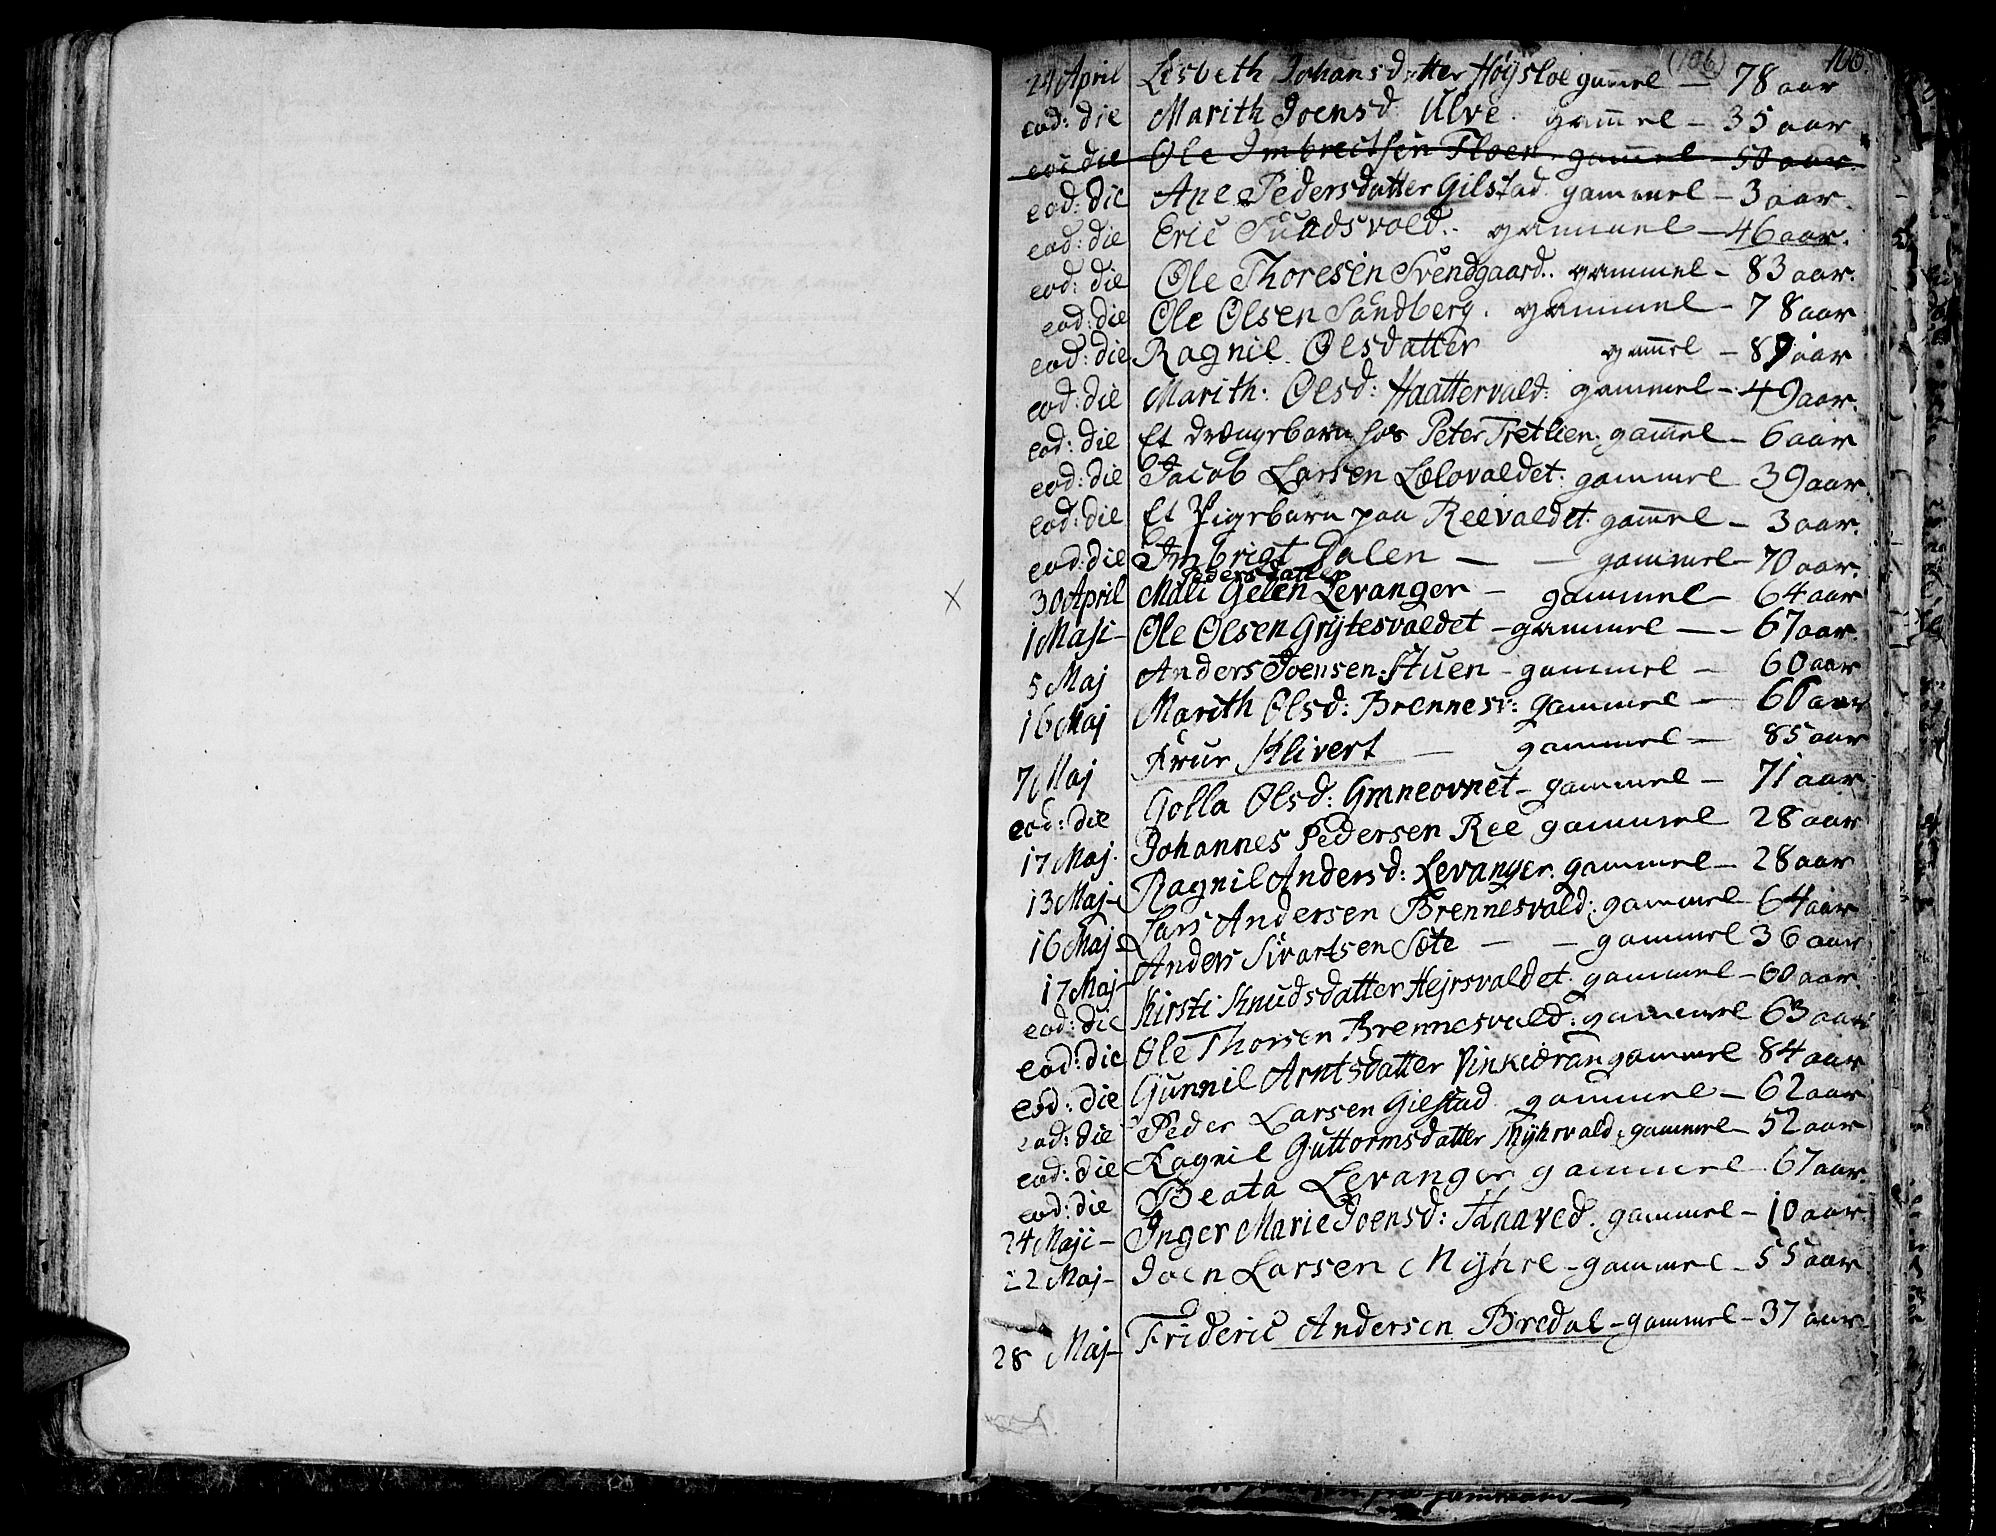 (106) 106
24 April Lisbeth Johansdatter Høÿsloe gam̄el — 78 aar
eod: die Marith Joensd Ulve. gam̄el — 35 aar
eod die Ole Imbrectsen Floen gam̄el — 50 aar.
eod: die Ane Pedersdatter Gilstad gammel — 3 aar.
eod: die Eric Sundsvald. gammel — 46 aar.
eod: die Ole Thoresen Svendgaard. gammel — 83 aar.
eod: die Ole Olsen Sandberg. gammel — 78 aar
eod: die Ragnil Olsdatter gam̄el — 89 aar
eod: die Marith: Olsd: Haattervald: gammel — 49 aar.
eod: die Et drængebarn hos Peter Tretlien. gam̄el — 6 aar
eod: die Jacob Larsen Lælovaldet: gammel 39 aar
eod: die Et Pigebarn paa Reevaldet. gam̄el — 3 aar.
eod: die Imbrigt Dalen — — gammel — 70 aar.
Pedersdatter
30 April Mali Gelen Levanger — gammel — 64 aar
1 Maji — Ole Olsen Grÿtesvaldet — gammel — — 67 aar.
5 Maj Anders Joensen Stuen — gammel — 60 aar
16 Maj Marith Olsd: Brennesv: gammel — 66 aar
7 Maj Frue Klivert — gammel — 85 aar
eod: die Golla Olsd: — gammel — 71 aar
17 Maj. Johannes Pedersen Ree gammel 28 aar
13 Maj — Ragnil Andersd: Levanger. gammel — 28 aar
16 Maj Lars Andersen Brennesvald: gammel 64 aar
17 Maj Anders Sivartsen Sæte — — gammel 36 aar
eod: die Kirsti Knudsdatter Hejrsvaldet. gammel — 60 aar.
eod: die Ole Thorsen Brennesvald: gammel 63 aar
eod: die Gunnil Arntsdatter gammel 84 aar
eod: die Peder Larsen Gilstad gammel — 62 aar
eod: die Ragnil Guttormsdatter Mÿhrvald. gammel — 52 aar
eod: die Beata Levanger gammel 67 aar.
24 Maji — Inger Marie Joensd: Haaved. gammel — 10 aar.
22 Maj — Joen Larsen Mÿhre — gammel — 55 aar
28 Maj — Frideric Andersen Bredal — gammel — 37 aar